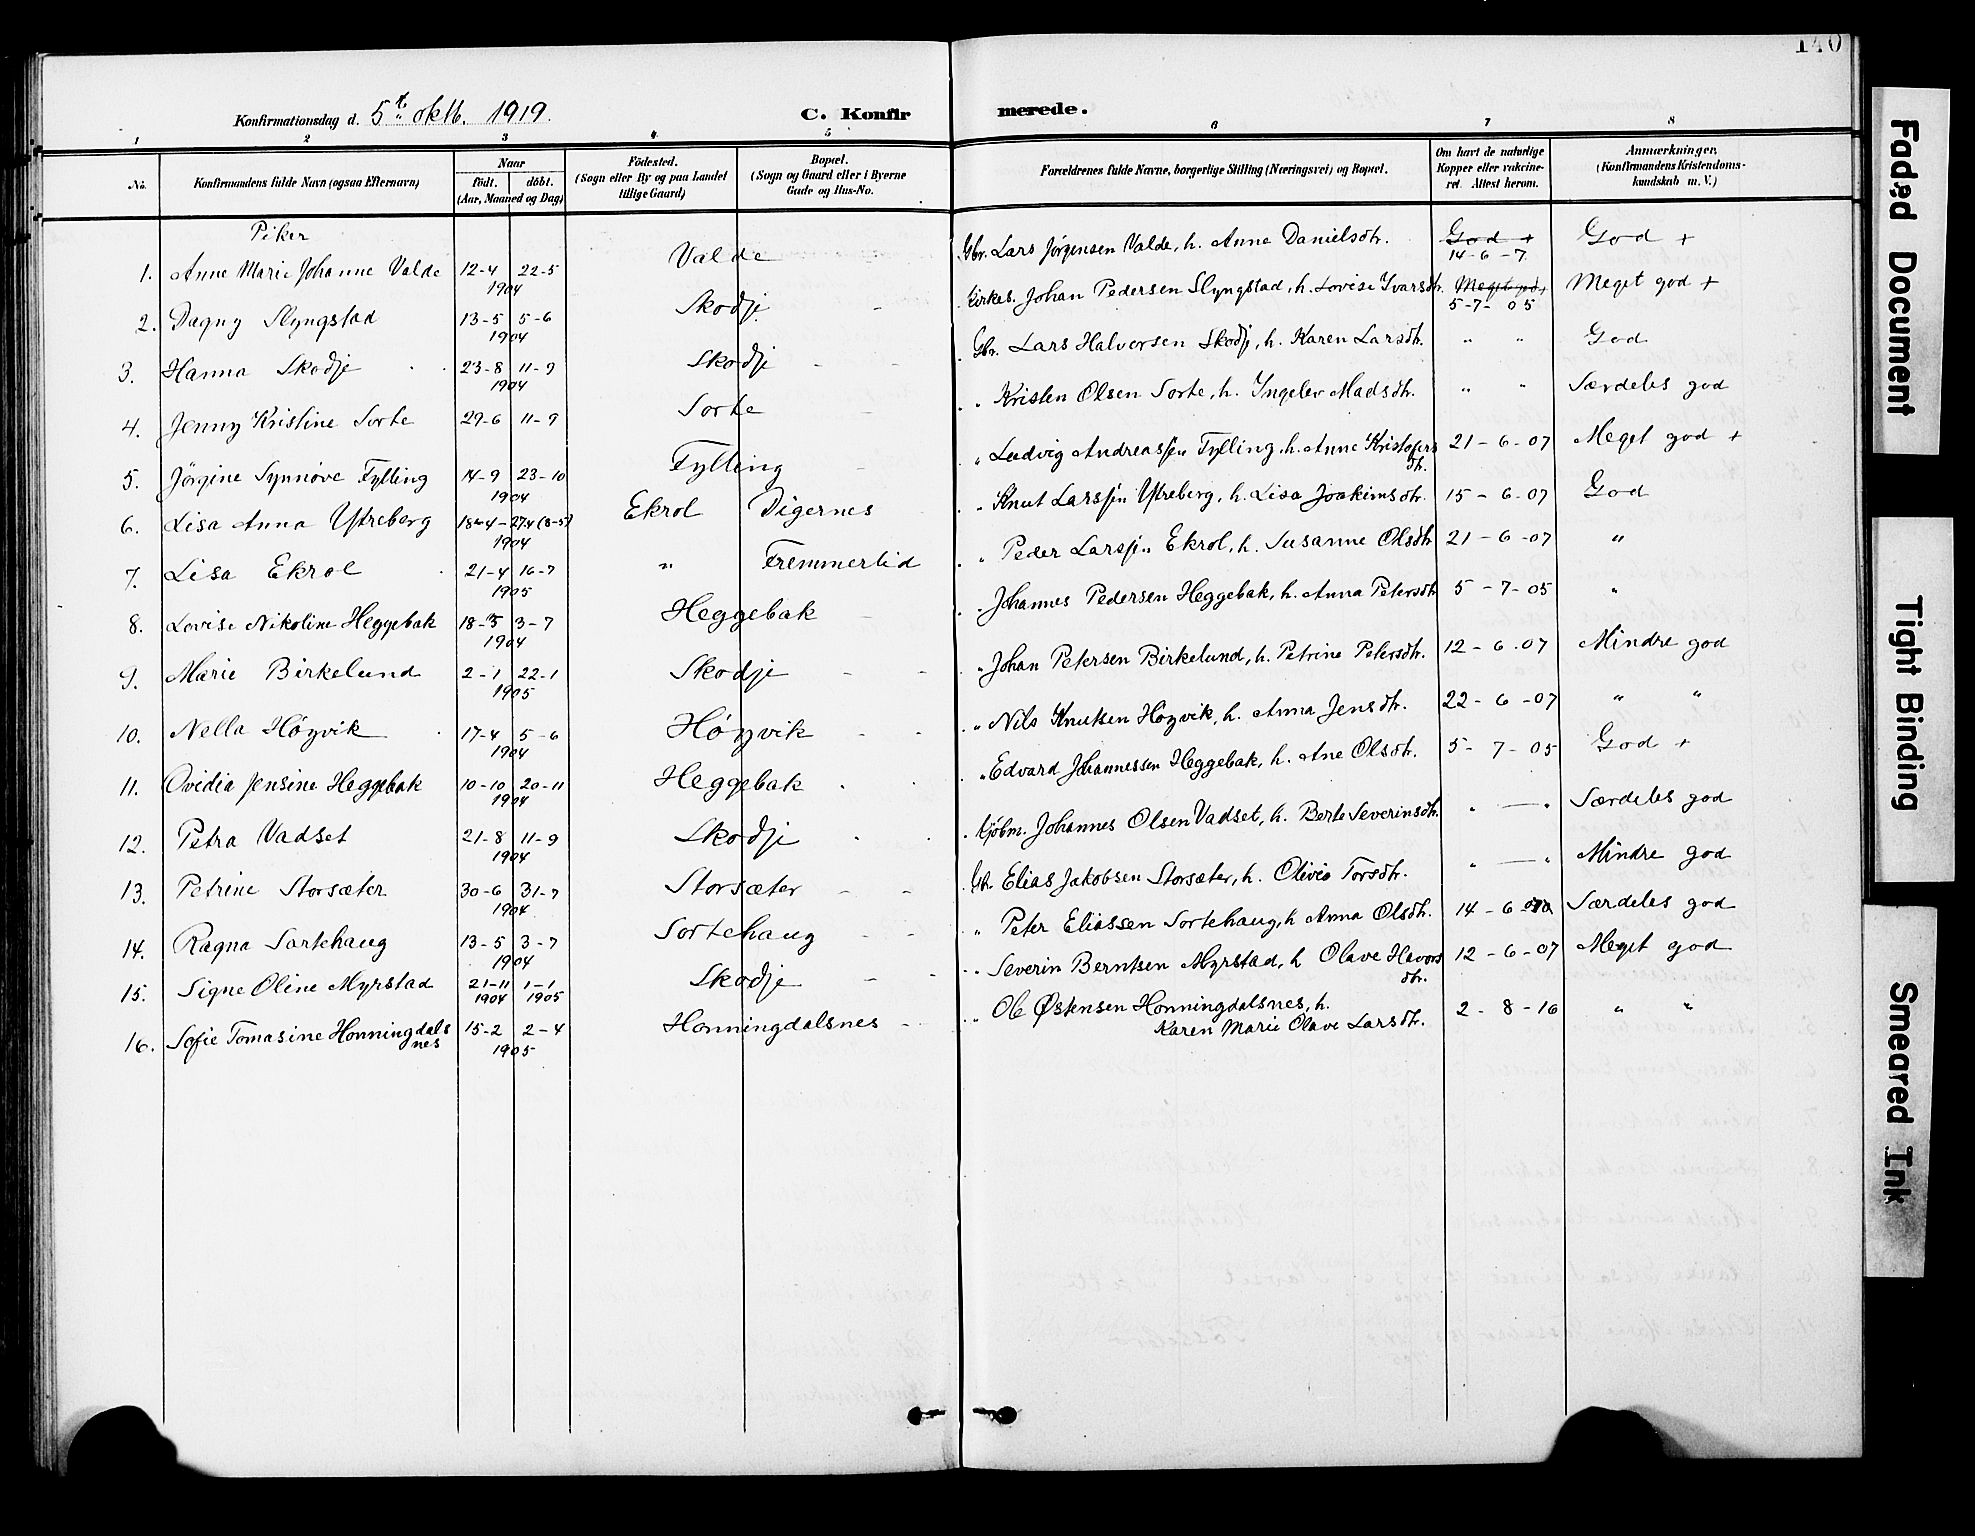 140
Konfirmationsdag d. 5te oktb. 1919. C. Konfirmerede.
1 2 3 4 5 6 7 8
No. Konfirmandens fulde Navn (ogsaa Efternavn) Naar født. døbt. (Aar, Maaned og Dag) Fødested. (Sogn eller By og paa Landet tillige Gaard) Bopæl. (Sogn og Gaard eller i Byerne Gade og Hus-No. Forældrenes fulde Navne, borgerlige Stilling (Næringsvei) og Bopæl. Om havt de naturlige Kopper eller vakcineret. Attest herom. Anmærkninger. (Konfirmandens Kristendomskundskab m. V.)
Piker
1. Anne Marie Johanne Valde 12-4 22-5 1904 Valde Gbr. Lars Jørgensen Valde, h. Anne Danielsdtr. God + 14-6-7 God +
2. Dagny Slyngstad 13-5 5-6 1904 Skodje Kirkes. Johan Pedersen Slyngstad, h. Lovise Ivarsdtr. Meget god + 5-7-05 Meget god +
3. Hanna Skodje 23-8 11-9 1904 Skodje Gbr. Lars Halvorsen Skodje, h. Karen Larsdtr. " " God
4. Jenny Kristine Sorte 29-6 11-9 Sorte " Kristen Olsen Sorte, h. Ingelev Madsdtr. " " Særdeles god
5. Jørgine Synnøve Fylling 14-9 23-10 1904 Fylling " Ludvig Andreassen Fylling, h. Anne Kristofersdtr. 21-6-07 Meget god +
6. Lisa Anna Ytreberg 18-4-27-4 (8-5) 1904 Ekrol Digernes " Knut Larssen Ytreberg, h. Lisa Joakimsdtr. 15-6-07 God
7. Lisa Ekrol 21-4 16-7 1905 " Fremmerlid " Peder Larssen Ekrol, h. Susanne Olsdtr 21-6-07 "
8. Lovise Nikoline Heggebak 18-5 3-7 1904 Heggebak " Johannes Pedersen Heggebak, h. Anna Petersdtr 5-7-05 "
9. Marie Birkelund 2-1 22-1 1905 Skodje " Johan Petersen Birkelund, h. Petrine Petersdtr. 12-6-07 Mindre god
10. Nella Høgvik 17-4 5-6 1904 Høgvik " Nils Knutsen Høgvik, h. Anna Jensdtr. 22-6-07 " "
11. Ovidia Jensine Heggebak 10-10 20-11 1904 Heggebak " Edvard Johannessen Heggebak, h. Ane Olsdtr. 5-7-05 God +
12. Petra Vadset 21-8 11-9 1904 Skodje Kjøbm. Johannes Olsen Vadset, h. Berte Severinsdtr. " — " Særdeles god
13. Petrine Storsæter 30-6 31-7 1904 Storsæter Gbr. Elias Jakobsen Storsæter, h. Olivia Torsdtr. " — " Mindre god
14. Ragna Sortehaug 13-5 3-7 1904 Sortehaug " Peter Eliassen Sortehaug, h Anna Olsdtr. 14-6 Særdeles god
15. Signe Oline Myrstad 21-11 1904 1-1 1905 Skodje " Severin Berntsen Myrstad, h Olave Havorsdtr. 12-6-07 Meget god
16. Sofie Tomasine Honningdalsnes 15-2 2-4 1905 Honningdalsnes " Ole Østensen Honningdalsnes, h. Karen Marie Olave Larsdtr. 2-8-16 " "
Faded Document
Tight Binding
Smeared Ink